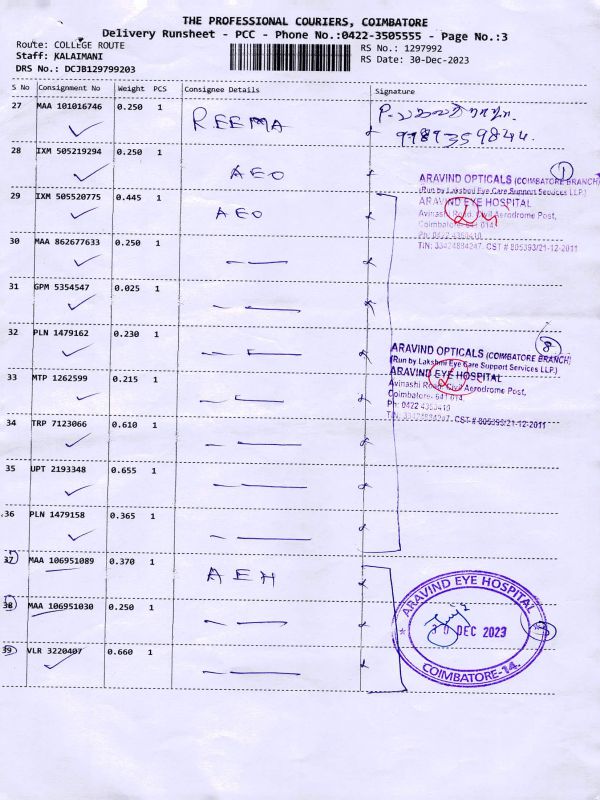 THE PROFESSIONAL COURIERS, COIMBATORE
Delivery Runsheet - PCC - Phone No.:0422-3505555 - Page No.:3
Route: COLLEGE ROUTE
Staff: KALAIMANI
DRS No.: DCJB129799203
RS No.: 1297992
RS Date: 30-Dec-2023
S No Consignment No Weight PCS Consignee Details Signature
27 MAA 101016746 0.250 1 REEMA
9789359844.
28 IXM 505219294 0.250 1 AEO
ARAVIND OPTICALS (COIMBATORE BRANCH)
(Run by Lakshmi Eye Care Support Services LLP.)
ARAVIND EYE HOSPITAL
Avinashi Road, Civil Aerodrome Post,
Coimbatore- 641 014
Ph: 0422 4360410
TIN: 33424884247. CST # 805393/21-12-2011
1
29 IXM 505520775 0.445 1 AEO
30 MAA 862677633 0.250 1
31 GPM 5354547 0.025 1
32 PLN 1479162 0.230 1
8
ARAVIND OPTICALS (COIMBATORE BRANCH)
(Run by Lakshmi Eye Care Support Services LLP.)
ARAVIND EYE HOSPITAL
Avinashi Road, Civil Aerodrome Post,
Coimbatore- 641 014
Ph: 0422 4360410
CST # 805393/21-12-2011
33 MTP 1262599 0.215 1
34 TRP 7123066 0.610 1
35 UPT 2193348 0.655 1
36 PLN 1479158 0.365 1
37 MAA 106951089 0.370 1 AEH
38 MAA 106951030 0.250 1
39 VLR 3220407 0.660 1
ARAVIND EYE HOSPITAL
30 DEC 2023
COIMBATORE-14.